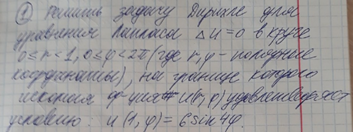 ① Решить задачу Дирихле для
уравнения Лапласа Δu=0 в круге
0≤r<1, 0≤φ<2π (где r,φ - полярные
координаты), на границе которого
искомая ф-ция u(r,φ) удовлетворяет
условию: u(1,φ)=6sin4φ.